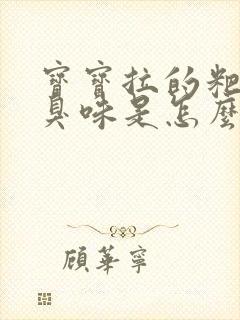 寶寶拉的粑
臭味是怎麼
顧華寧